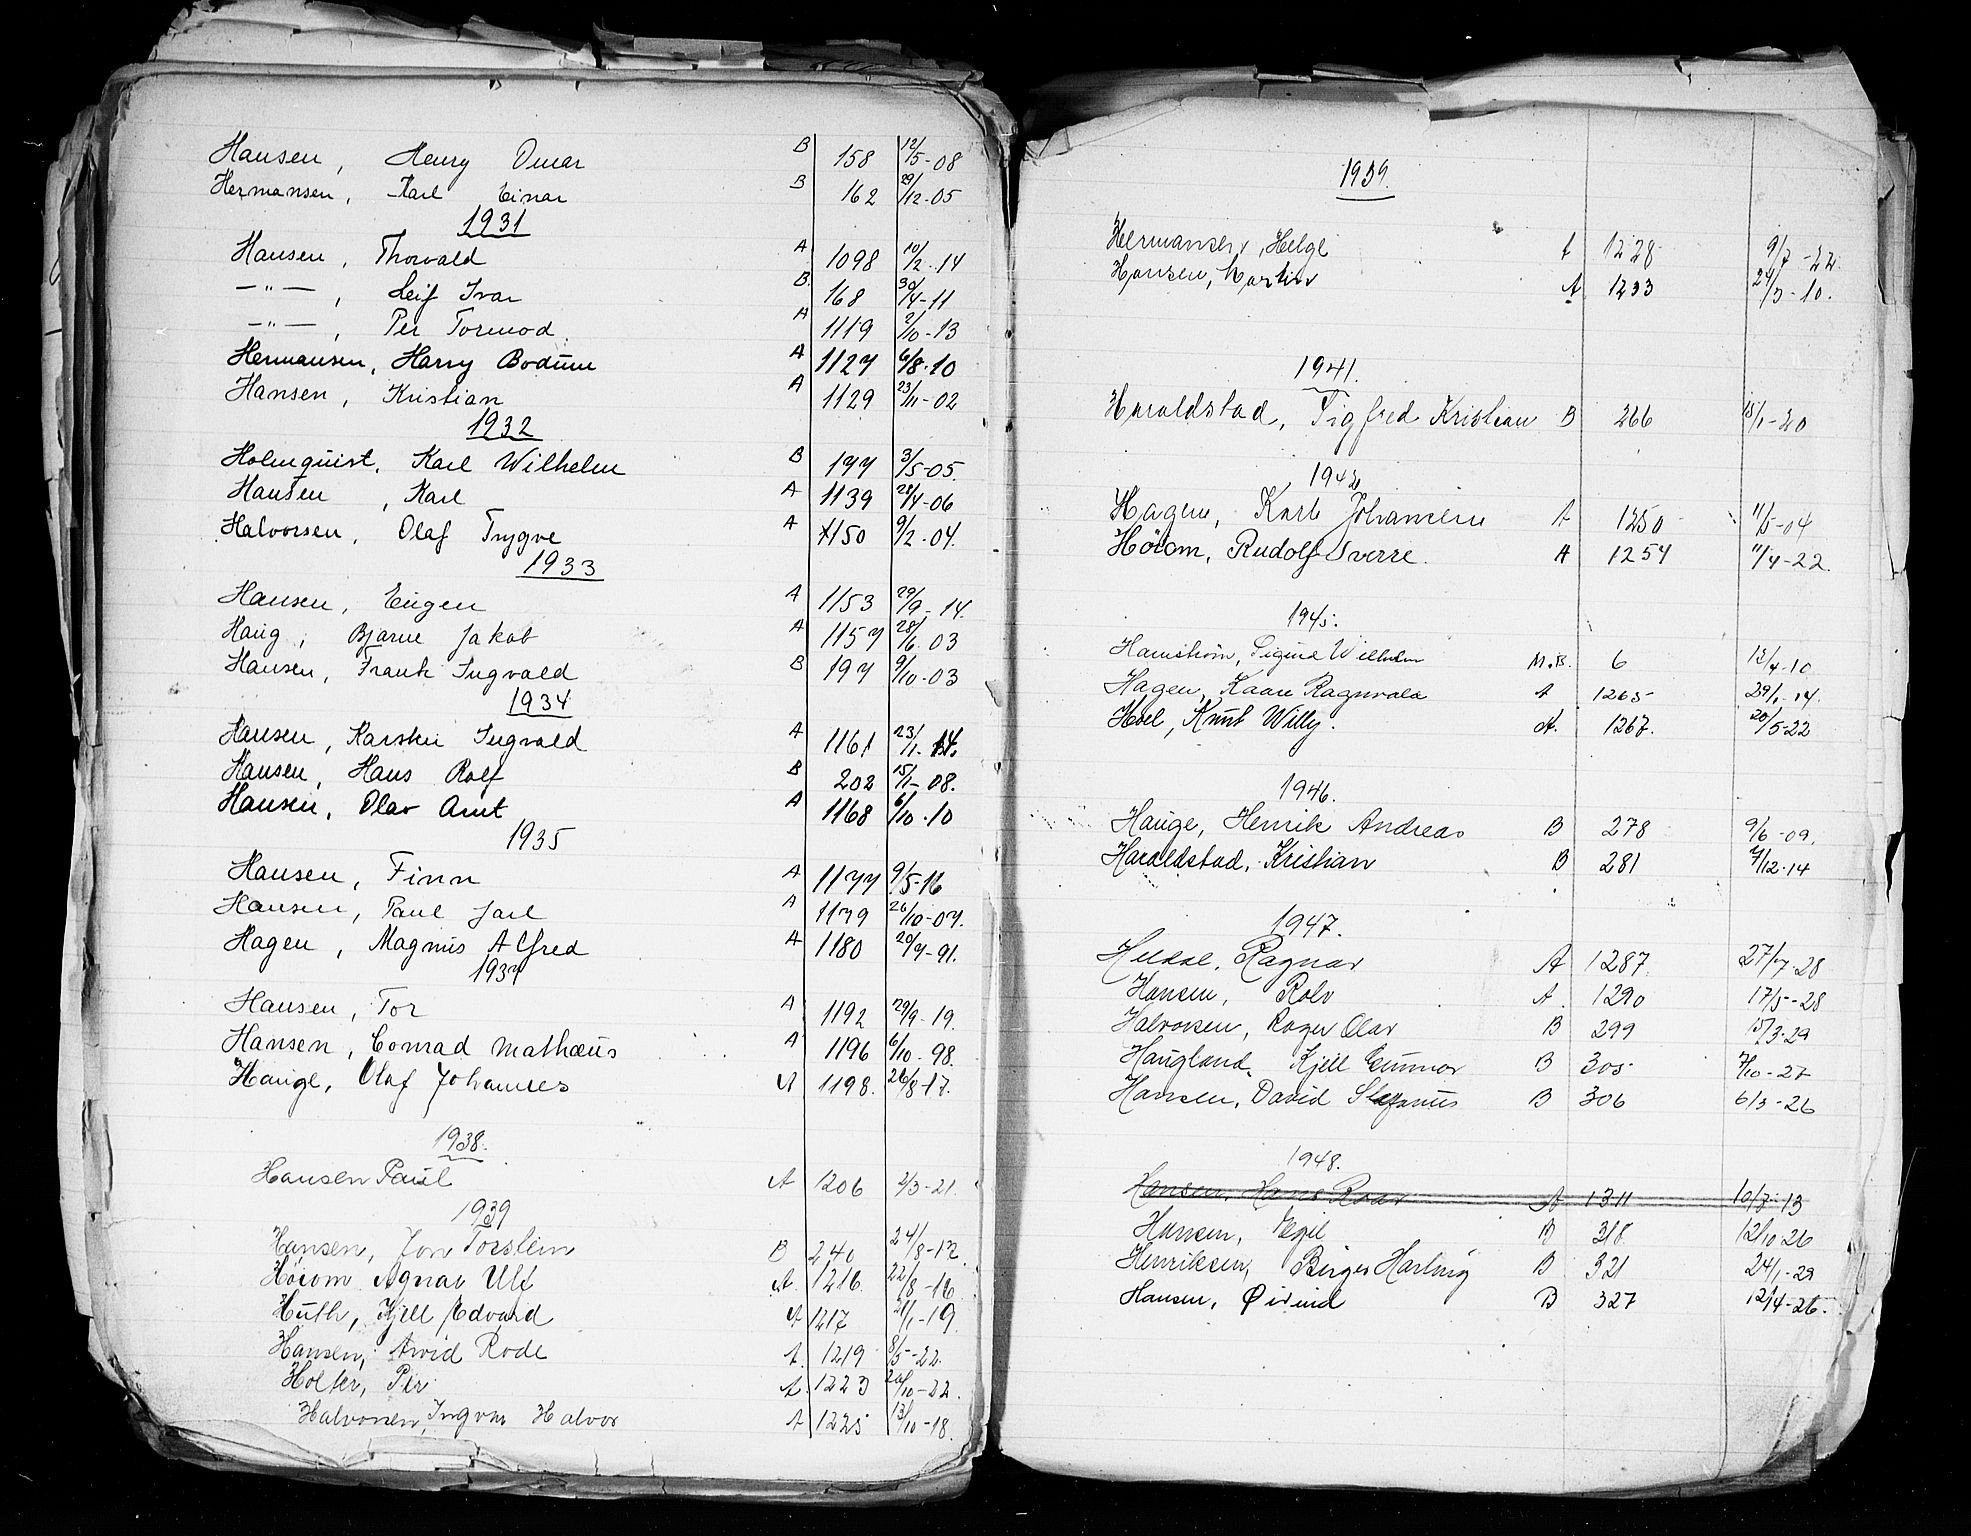 Hansen, Henry Omar B 158 12/5-08
Hermansen, Karl Einar B 162 29/12-05
1931
Hansen, Thorvald A 1098 10/2-14
-"-, Leif Ivar B 168 30/4-11
-"-, Per Tormod A 1119 2/10-13
Hermansen, Harry Bodum A 1127 6/8-10
Hansen, Kristian A 1129 23/11-02
1932
Holmquist, Karl Wilhelm B 177 3/5-05.
Hansen, Karl A 1139 28/4-06
Halvorsen, Olaf Trygve A 1150 9/2-04.
1933
Hansen, Eugen A 1153 29/9-14.
Haug, Bjarne Jakob A 1157 28/6-03
Hansen, Frank Ingvald B 197 9/10-03
1934
Hansen, Karsten Ingvald A 1161 23/11-14.
Hansen, Hans Rolf B 202 15/1-08.
Hansen, Olav Arnt A 1168 6/10-10
1935
Hansen, Finn A 1177 9/5-16
Hansen, Paul Jarl A 1179 26/10-07.
Hagen, Magnus Alfred A 1180 20/9-91.
1937
Hansen, Tor A 1192 29/9-19.
Hansen, Conrad Mathæus A 1196 6/10-98.
Hauge, Olaf Johannes A 1198. 26/8-17.
1938.
Hansen Paul A 1206 2/3-21.
1939
Hansen, Jon Torstein B 240 24/8-12
Höiom Agnar Ulf A. 1216 22/8-16
Huth, Kjell Edvard A 1217 21/1-19
Hansen, Arvid Rode A. 1219 8/5-22.
Holter, Per A. 1223 20/10-22.
Halvorsen, Ingvar Halvor A 1225 13/10-18.
1939.
Hermansen, Helge A 1228 9/7-22.
Hansen, Martin A 1233 24/3-10.
1941.
Haraldstad, Sigfred Kristian B 266 15/1-20
1942
Hagen, Karl Johansen A 1250 11/5-04
Höiom, Rudolf Sverre. A 1254 11/4-22.
1945.
Hamstrøm, Sigurd Wilhelm M.B. 6 13/4-10
Hagen, Kaare Ragnvald A 1265 29/1-14.
Hoel, Knut Willy. A. 1267. 20/5-22
1946.
Hauge, Henrik Andreas B 278 9/6-09.
Haraldstad, Kristian B 281 7/12-14
1947.
Ragnar A 1287. 27/7-28
Hansen, Rolv A. 1290 17/5-28
Halvorsen, Roger Olav B 299 15/3-29
Haugland, Kjell Gunnar B 305 7/10-27
Hansen, David Stefanus B 306 6/3-26
1948.
Hansen, Hans Roar A 1311 10/3-13
Hansen, Egil B 318 12/10-26
Henriksen, Birger Harling B 321 24/1-29
Hansen, Øivind B 327 12/4-26.